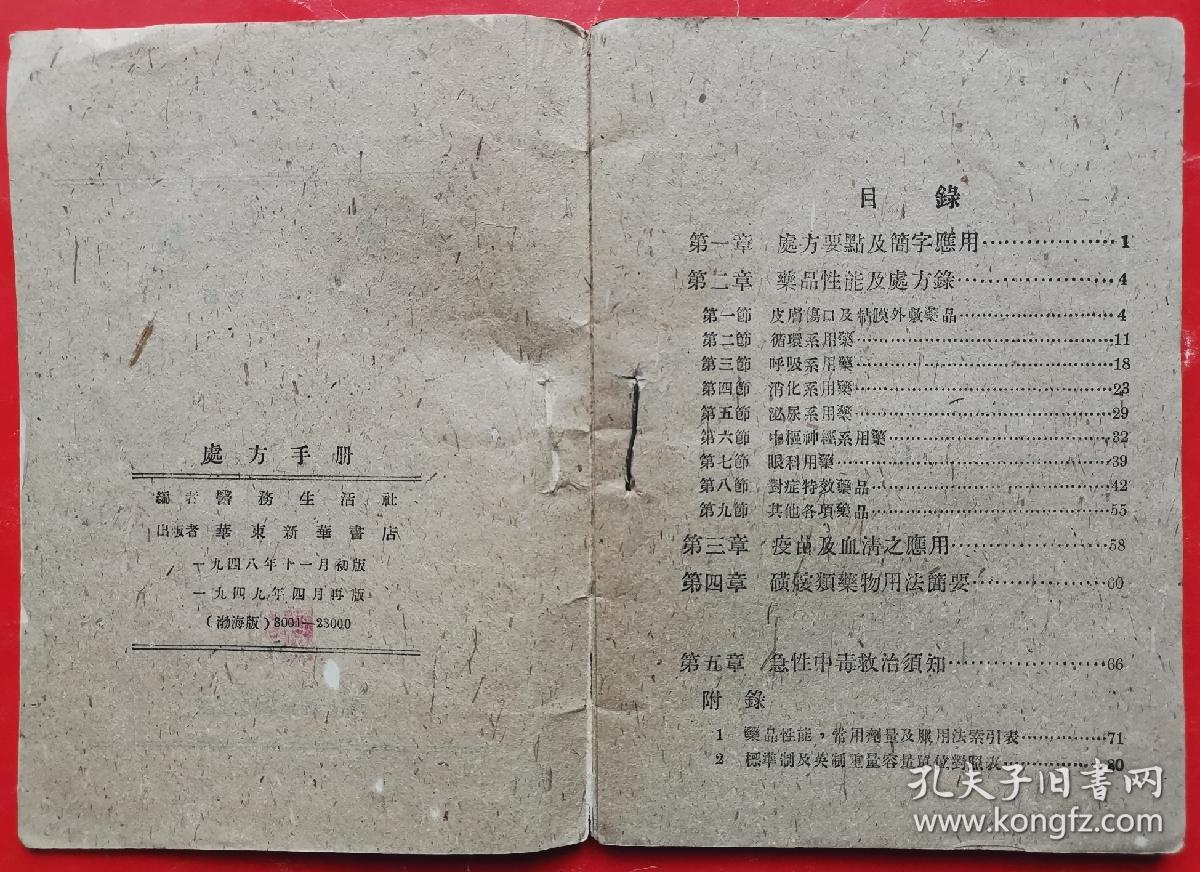 處方手册
編者 醫務生活社
出版者 華東新華書店
一九四八年十一月初版
一九四九年四月再版
(渤海版) 8001—23000
目 錄
第一章 處方要點及簡字應用……………1
第二章 藥品性能及處方錄……………4
第一節 皮膚傷口及粘膜外敷藥品……………4
第二節 循環系用藥……………11
第三節 呼吸系用藥……………18
第四節 消化系用藥……………23
第五節 泌尿系用藥……………29
第六節 中樞神經系用藥……………32
第七節 眼科用藥……………39
第八節 對症特效藥品……………42
第九節 其他各項藥品……………55
第三章 疫苗及血淸之應用……………58
第四章 磺胺類藥物用法簡要……………60
第五章 急性中毒救治須知……………66
附 錄
1 藥品性能，常用劑量及服用法索引表……………71
2 標準制及英制重量容量單位對照表……………80
孔夫子旧书网
www.kongfz.com